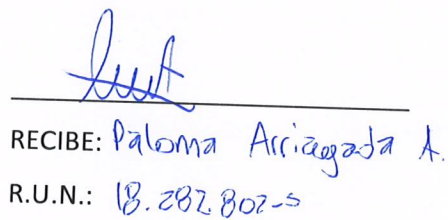 RECIBE: Paloma Arriagada A.
R.U.N.: 18.282.802-5